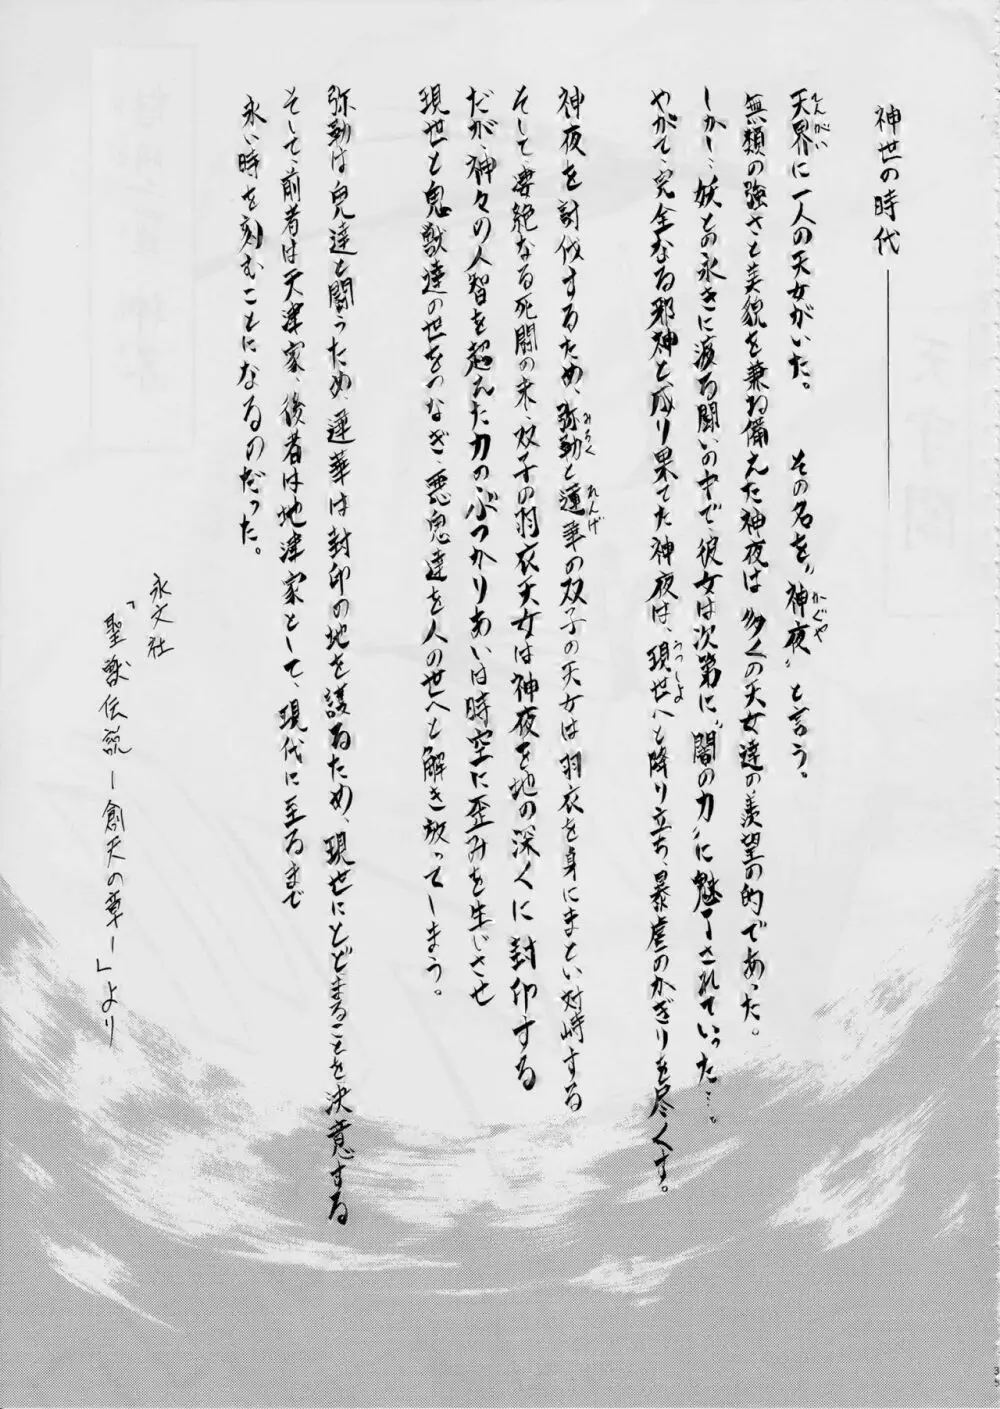 神世の時代――――
天界に一人の天女がいた。　その名を〝神夜〟と言う。
無類の強さと美貌を兼ね備えた神夜は多くの天女達の羨望の的であった。
しかし…妖との永きに渡る闘いの中で、彼女は次第に〝闇の力〟に魅了されていった…。
やがて、完全なる邪神と成り果てた神夜は、現世へと降り立ち、暴虐のかぎりを尽くす。
神夜を討伐するため、弥勒と蓮華の双子の天女は羽衣を身にまとい対峙する
そして凄絶なる死闘の末、双子の羽衣天女は神夜を地の深くに封印する
だが、神々の人智を超えた力のぶつかりあいは時空に歪みを生じさせ
現世と鬼獣達の世をつなぎ、悪鬼達を人の世へと解き放ってしまう。
弥勒は鬼達と闘うため、蓮華は封印の地を護るため、現世にとどまることを決意する
そして、前者は天津家、後者は地津家として、現代に至るまで
永い時を刻むことになるのだった。
永文社
「聖獣伝説ー創天の章ー」より